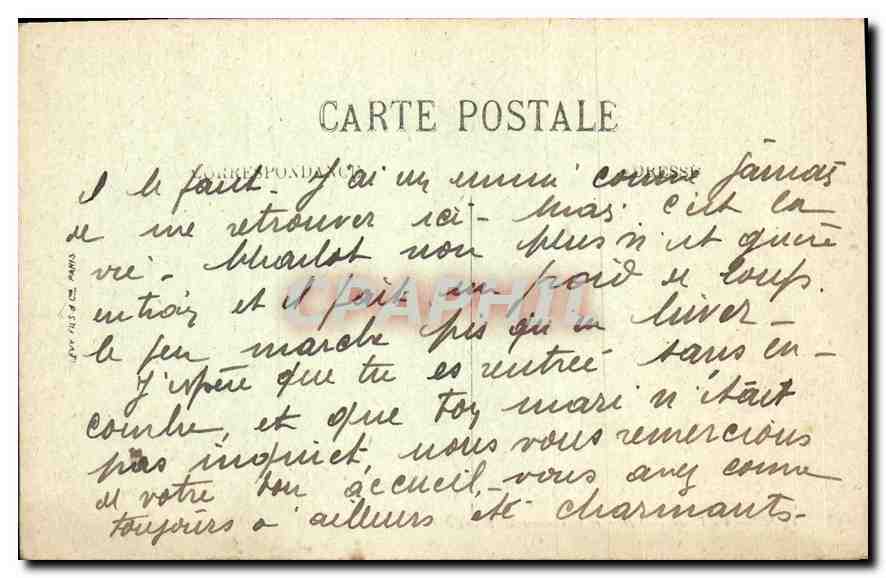 CARTE POSTALE
CORRESPONDANCE
ADRESSE
il le faut. J'ai un ennui comme jamais
de me retrouver ici - mais c'est la
vie. Charlot non plus n'est guère
entrain et il fait un froid de loup.
le feu marche pis qu'en hiver -
J'espère que tu es rentrée sans en-
combre, et que ton mari n'était
pas inquiet nous vous remercions
de votre bon accueil - vous avez comme
toujours d'ailleurs été charmants -
LEVY FILS & Cie PARIS
CPAPHIL